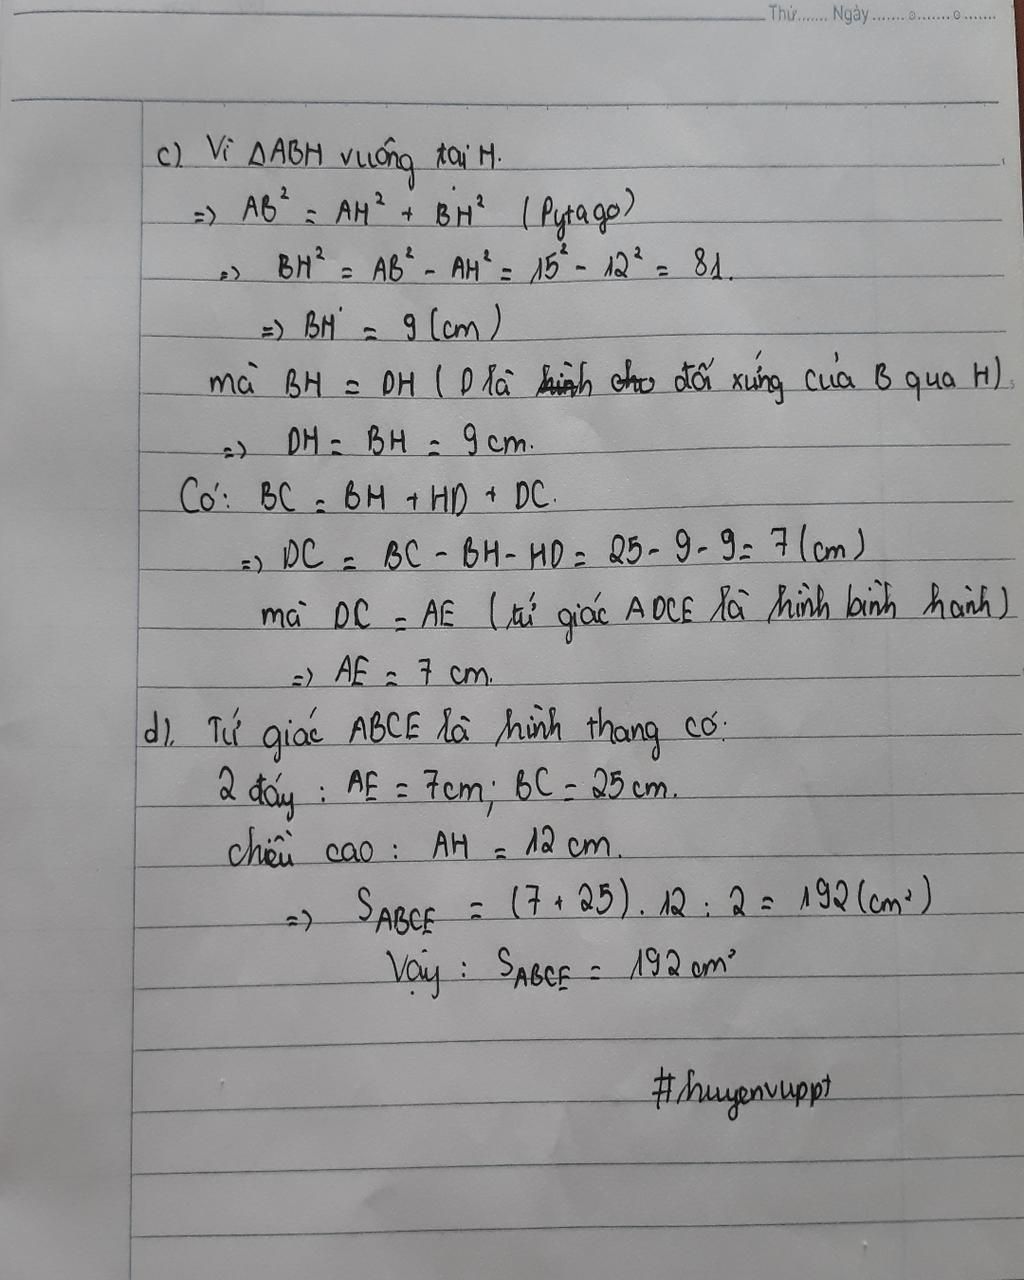 Thứ....... Ngày.......o.......o.......
c). Vì ΔABH vuông tại H.
=> AB² = AH² + BH² (Pytago)
=> BH² = AB² - AH² = 15² - 12² = 81.
=> BH = 9 (cm)
mà BH = DH ( D là hình cho đối xứng của B qua H)
=> DH = BH = 9 cm.
Có: BC = BH + HD + DC.
=> DC = BC - BH - HD = 25 - 9 - 9 = 7 (cm)
mà DC = AE (tứ giác ADCE là hình bình hành)
=> AE = 7 cm.
d). Tứ giác ABCE là hình thang có:
2 đáy : AE = 7cm; BC = 25 cm.
chiều cao : AH = 12 cm.
=> S_ABCE = (7 + 25) . 12 : 2 = 192 (cm²)
Vậy : S_ABCE = 192 cm²
#huyenvuppt